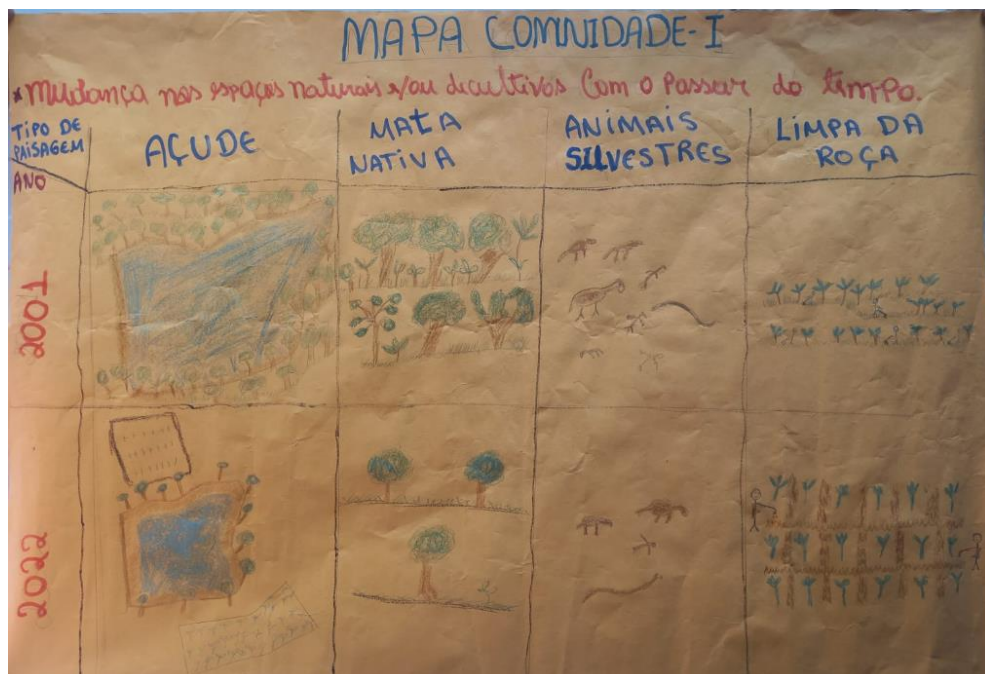 MAPA COMNIDADE-I
*Mudança nos espaços naturais e/ou de cultivos Com o Passar do tempo.
TIPO DE PAISAGEM
ANO
AÇUDE
MATA NATIVA
ANIMAIS SILVESTRES
LIMPA DA ROÇA
2001
2022